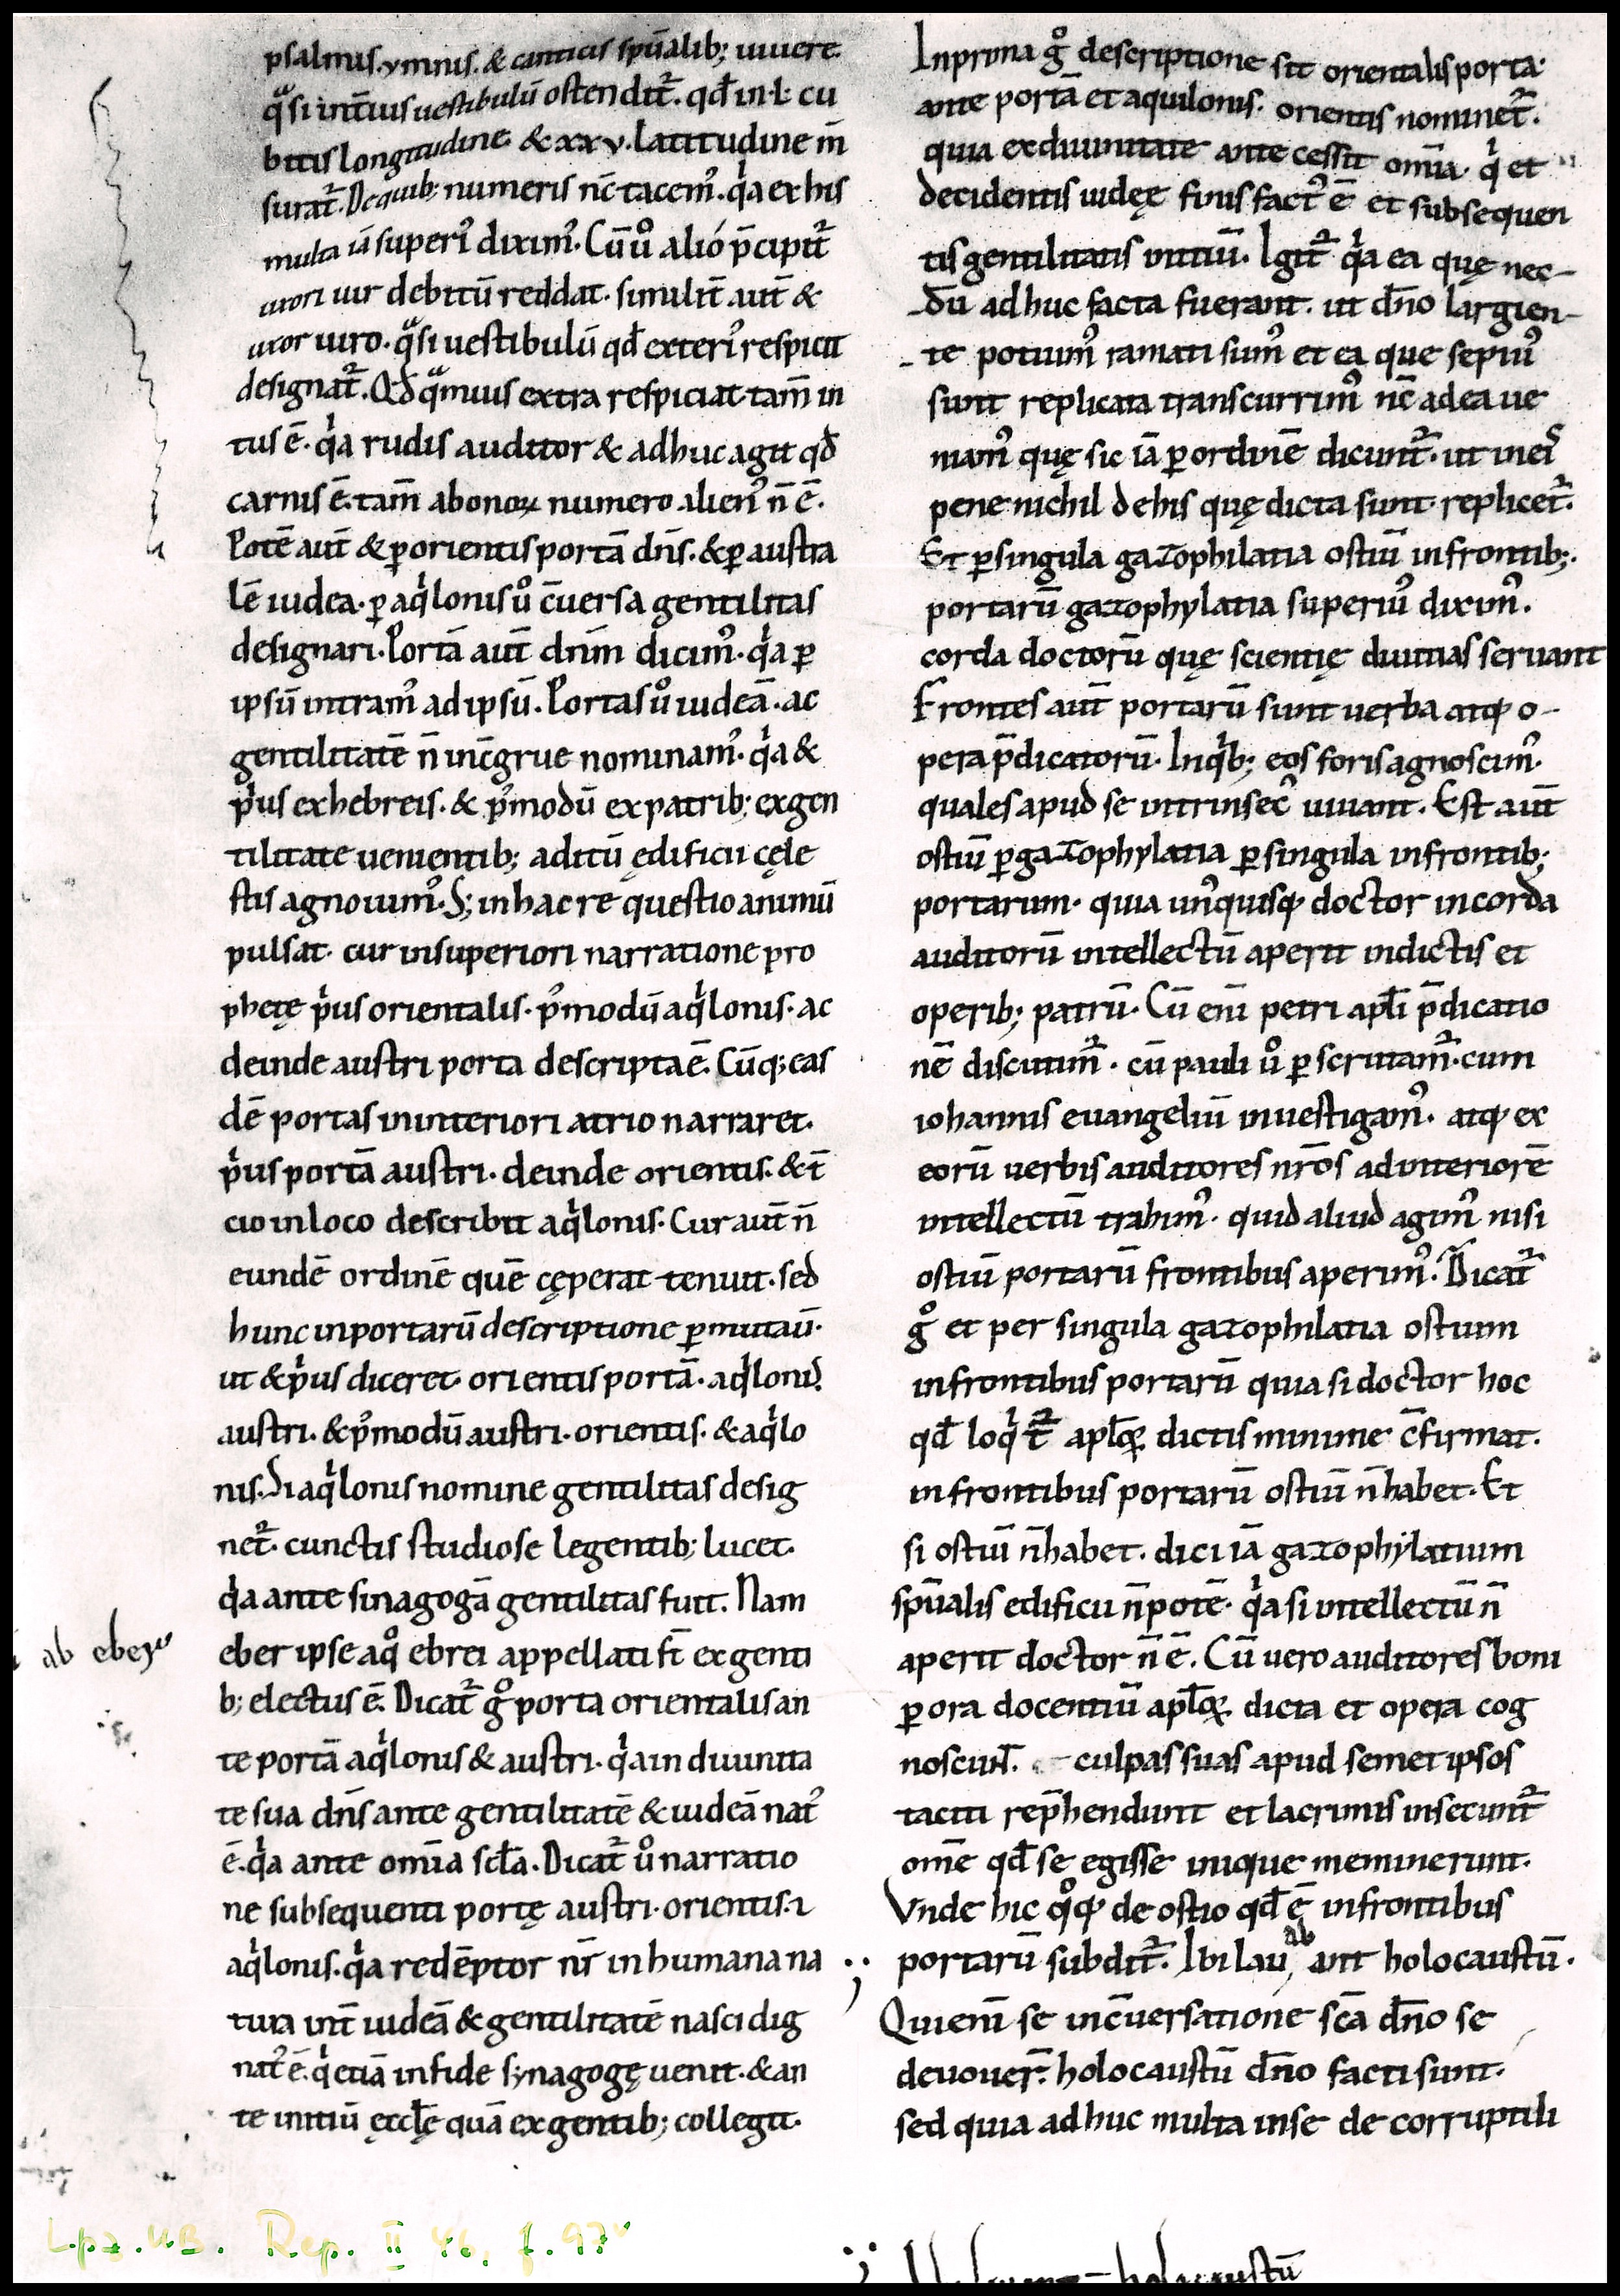 psalmis. ymnis. & canticis spūalib; uiuere.
qͣsi int̄ius uestibulū ostendit᷑. qd̄ in .l. cu
bitis longitudine & xxv. latitudine m̄
surat᷑. De quib; numeris nc̄ tacem᷒. qͥa ex his
multa iā superi᷒ dixim᷒. Cū uͦ alió p̄cipit᷑
uxori uir debitū reddat. similit̄ aut̄ &
uxor uiro. qͣsi uestibulū qd̄ exteri᷒ respicit
designat᷑. Qd̄ qͣmuis extra respiciat tam̄ in
tus ē. qͥa rudis auditor & adhuc agit qd̄
carnis ē. tam̄ a bonoꝝ numero alien᷒ n̄ ē.
Potē aut̄ & ꝑ orientis portā dn̄s. & ꝑ austra
lē iudea. ꝑ aqͥlonis uͦ c̄uersa gentilitas
designari. Portā aut̄ dn̄m dicim᷒. qͥa ꝑ
ipsū intram᷒ ad ipsū. Portas uͦ iudeā. ac
gentilitatē n̄ inc̄grue nominam᷒. qͥa &
pͥus ex hebreis. & p᷒modū ex patrib; ex gen
tilitate uenientib; aditū ędificii cęle
stis agnouim᷒. S; in hac re questio animū
pulsat. cur in superiori narratione pro
phetę pͥus orientalis. p᷒modū aqͥlonis. ac
deinde austri porta descripta ē. Cūq; eas
dē portas in interiori atrio narraret.
pͥus portā austri. deinde orientis. & t̄
cio in loco describit aqͥlonis. Cur aut̄ n̄
eundē ordinē quē cęperat tenuit. sed
hunc in portarū descriptione ꝑmutauͭ.
ut & pͥus diceret orientis portā. aqͥlonis.
austri. & p᷒modū austri. orientis. & aqͥlo
nis. Si aqͥlonis nomine gentilitas desig
net᷑. cunctis studiose legentib; lucet.
qͥa ante sinagogā gentilitas fuit. Nam
ab ebere
eber ipse a qͦ ebrei appellati st̄ ex genti
b; electus ē. Dicat᷑ gͦ porta orientalis an
te portā aqͥlonis & austri. qͥa in diuinita
te sua dn̄s ante gentilitatē & iudeā nat᷒
ē. qͥa ante om̄ia scl̄a. Dicat᷑ uͦ narratio
ne subsequenti portę austri. orientis. ⁊
aqͥlonis. qͥa redēptor nr̄ in humana na
tura int̄ iudeā & gentilitatē nasci dig
nat᷒ ē. qͥ etiā in fide synagogę uenit. & an
te initiū ęccl̄ę quā ex gentib; collegit.
In prima gͦ descriptione sit orientalis porta.
ante portā et aquilonis. orientis nominet᷑.
quia ex diuinitate antecessit om̄ia. qͥ et
decidentis iudęę finis fact᷒ ē et subsequen
tis gentilitatis initiū. Igit᷑ qͥa ea quę nec-
dū adhuc facta fuerant. ut dn̄o largien-
te potuim᷒ rimati sum᷒ et ea que sepiu᷒
sunt replicata transcurrim᷒ nc̄ ad ea ue
niam᷒ quę sic iā ꝑ ordinē dicunt᷑. ut in eis
pene nichil de his quę dicta sunt replicet᷑.
Et ꝑ singula gazophilatia ostiū in frontib;.
portarū gazophylatia superiu᷒ dixim᷒.
corda doctorū quę scientię diuitias seruant
Frontes aut̄ portarū sunt uerba atq; o-
pera p̄dicatorū. In qͥb; eos foris agnoscim᷒.
quales apud se intrinsec᷒ uiuant. Est aut̄
ostiū ꝑ gazophylatia ꝑ singula in frontib;
portarum. quia un᷒quisq; doctor in corda
auditorū intellectū aperit in dictis et
operib; patrū. Cū eni petri apl̄i p̄dicatio
nē discutim᷒. cū pauli uͦ ꝑscrutam᷑. cum
iohannis euangeliū inuestigam᷒. atq; ex
eorū uerbis auditores nr̄os ad interiorē
intellectū trahim᷒. quid aliud agim᷒ nisi
ostiū portarū frontibus aperim᷒. Dicat᷑
gͦ et per singula gazophilatia ostium
in frontibus portarū quia si doctor hoc
qd̄ loqͥt᷑ apl̄oꝝ dictis minime c̄firmat.
in frontibus portarū ostiū n̄ habet. Et
si ostiū n̄ habet. dici iā gazophylatium
spūalis edificii n̄ potē. qͥa si intellectū n̄
aperit doctor n̄ ē. Cū uero auditores boni
ꝑ ora docentiū apl̄oꝝ dicta et opera cog
noscunt. culpas suas apud semet ipsos
taciti rep̄hendunt et lacrimis insecunt᷑
om̄e qd̄ se egisse inique meminerunt.
Vnde hic qͦq; de ostio qd̄ ē in frontibus
portarū subdit᷑. Ibi lauabant holocaustū.
Qui eni se in c̄uersatione sc̄a dn̄o se
deuouer̄. holocaustū dn̄o facti sunt.
sed quia adhuc multa in se de corruptili
Lpz. UB. Rep. II 46, f. 97v
holocaustū